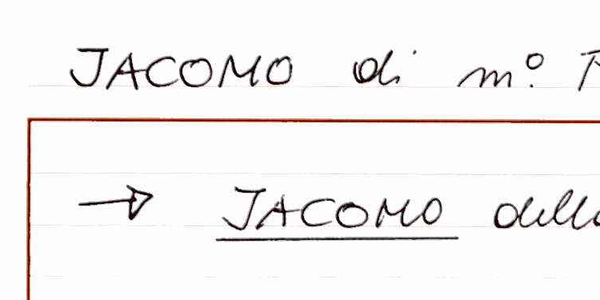 JACOMO di m.º
→ JACOMO